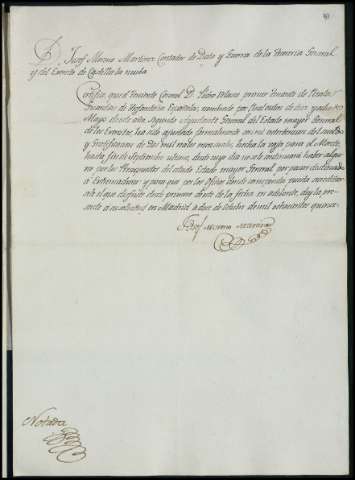 D. Josef Moreno Martinez Contador de Data y Guerra de la Tesoreria General
y del Exercito de Castilla la nueva
Certifico, que el Teniente Coronel D. primer Teniente de Reales
Guardias de Ynfanteria Española, nombrado por Real orden de diez y ocho de
Mayo deste año Segundo Ayudante General del Estado mayor General
de los Exercitos, ha sido ajustado formalmente con mi intervencion del sueldo
y Gratificacion de Dos mil reales mensuales, hecha la vaja para el Monte,
hasta fin de Septiembre ultimo, desde cuyo dia no se le continuará haber algu-
no por los del citado Estado mayor General por pasar destinado
a Extremadura: y para que por las Oficinas donde corresponda pueda acreditar-
sele el que disfrute desde primero de este de la fecha en adelante, doy la pre-
sente a en Madrid a dos de Octubre de mil ochocientos quince.
Josef Moreno Martinez
Notada